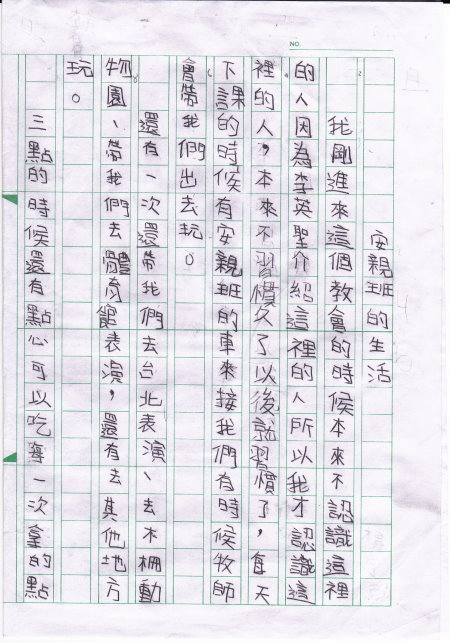 NO.
安親班的生活
我剛進來這個教會的時候本來不認識這裡
的人因為李英聖介紹這裡的人所以我才認識這
裡的人，本來不習慣久了以後就習慣了，每天
下課的時候有安親班的車來接我們有時候牧師
會帶我們出去玩。
還有一次還帶我們去台北表演、去木柵動
物園、帶我們去體育館表演，還有去其他地方
玩。
三點的時候還有點心可以吃每一次拿的點